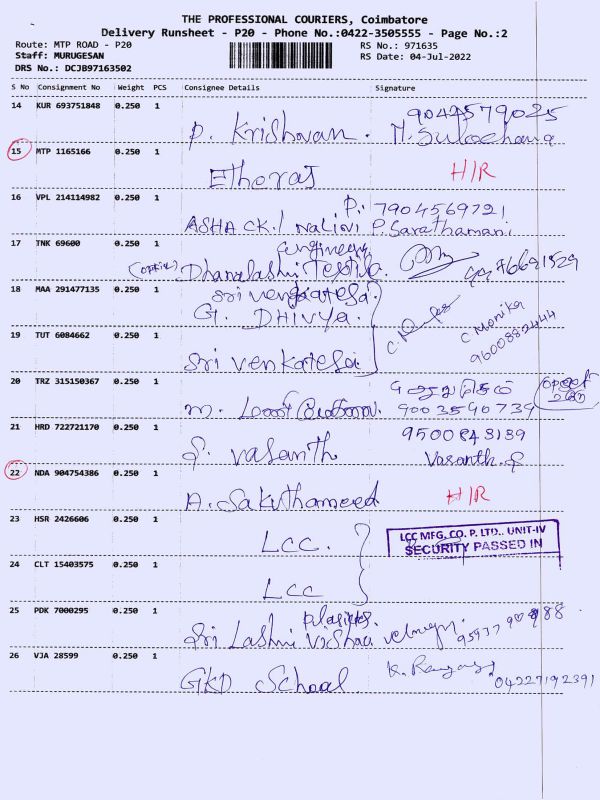 THE PROFESSIONAL COURIERS, Coimbatore
Delivery Runsheet - P20 - Phone No.:0422-3505555 - Page No.:2
Route: MTP ROAD - P20 RS No.: 971635
Staff: MURUGESAN RS Date: 04-Jul-2022
DRS No.: DCJB97163502
S No Consignment No Weight PCS Consignee Details Signature
14 KUR 693751848 0.250 1
P. Krishnan. N. Sulochana
15 MTP 1165166 0.250 1
Ethoraj H/R
16 VPL 214114982 0.250 1
P. 7904569721
ASHA CK. / Nalini P. Sarathamani
17 TNK 69600 0.250 1
(office)
18 MAA 291477135 0.250 1
G. DHIVYA.
C Monika
9600882444
19 TUT 6084662 0.250 1
Sri Venkatesa
20 TRZ 315150367 0.250 1
M. 9003590739
21 HRD 722721170 0.250 1
9500843139
S. Vasanth Vasanth. S
22 NDA 904754386 0.250 1
H/R
23 HSR 2426606 0.250 1
LCC.
LCC MFG. CO. P. LTD., UNIT-IV
SECURITY PASSED IN
24 CLT 15403575 0.250 1
LCC
25 PDK 7000295 0.250 1
Sri Lashmi
26 VJA 28599 0.250 1
GKD School 04227192391